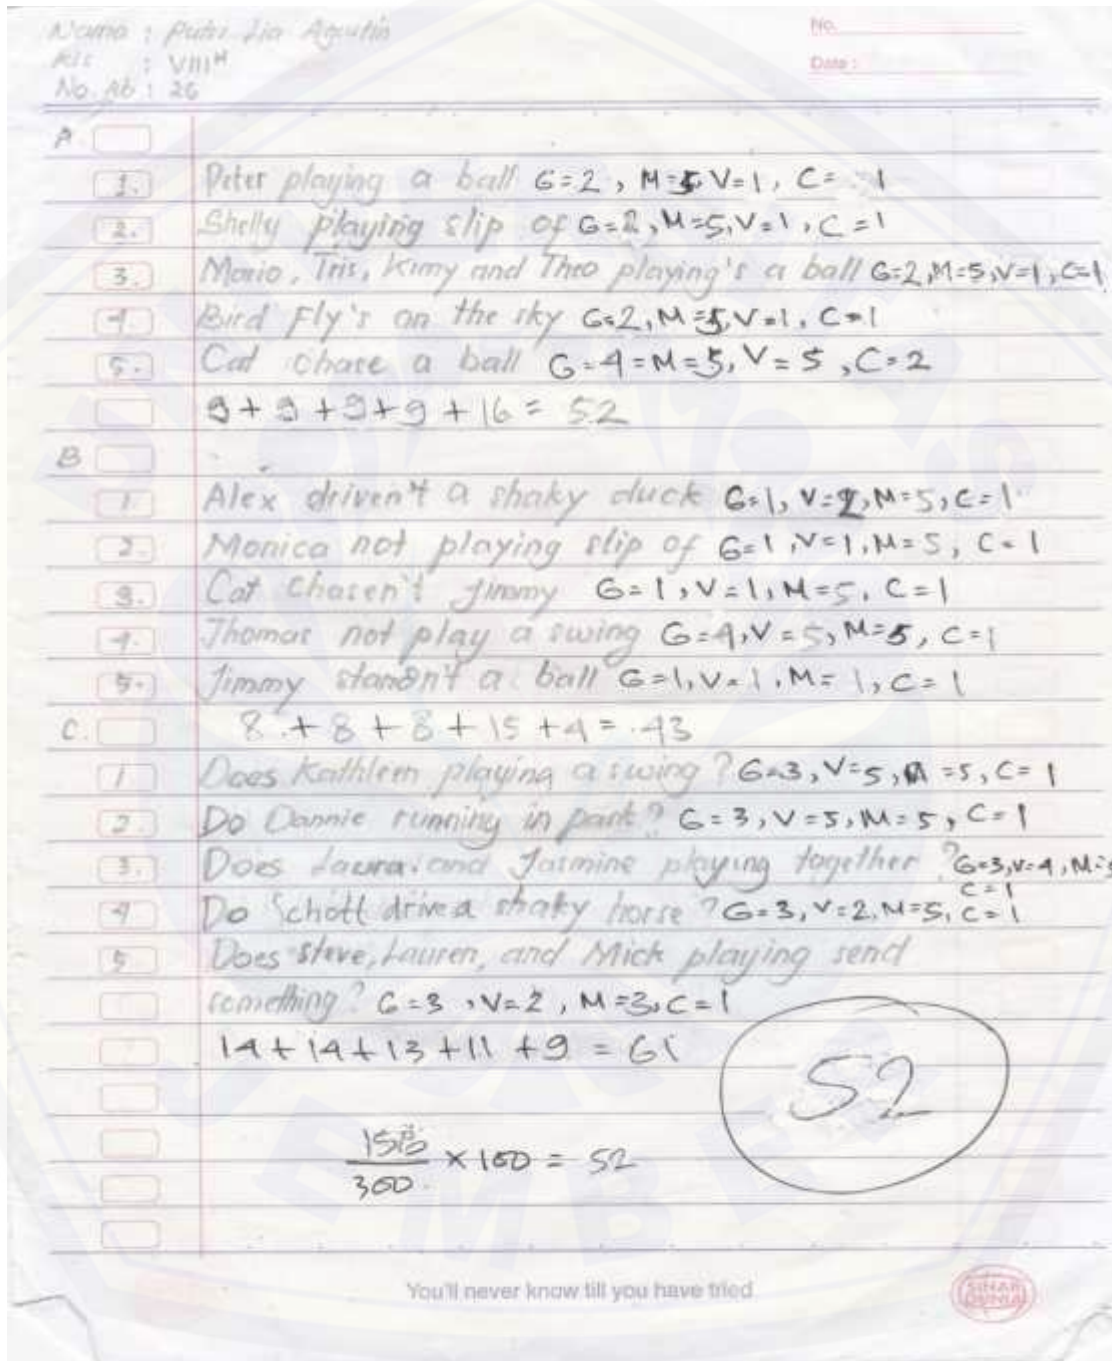 Nama : Putri Lia Agustin
No.
Kls : VIII H
Date :
No. Ab : 26
A
1. Peter playing a ball G=2, M=5, V=1, C=1
2. Shelly playing slip of G=2, M=5, V=1, C=1
3. Mario, Tris, Kimy and Theo playing's a ball G=2, M=5, V=1, C=1
4. Bird Fly's on the sky G=2, M=5, V=1, C=1
5. Cat chase a ball G=4=M=5, V=5, C=2
9+9+9+9+16 = 52
B
1. Alex driven't a shaky duck G=1, V=1, M=5, C=1
2. Monica not playing slip of G=1, V=1, M=5, C=1
3. Cat chasen't Jimmy G=1, V=1, M=5, C=1
4. Thomas not play a swing G=4, V=5, M=5, C=1
5. Jimmy standn't a ball G=1, V=1, M=1, C=1
C. 8+8+8+15+4=43
1 Does Kathleen playing a swing? G=3, V=5, M=5, C=1
2. Do Dannie running in park? G=3, V=5, M=5, C=1
3. Does Laura and Jasmine playing together? G=3, V=4, M=5
C=1
4 Do Schott drive a shaky horse? G=3, V=2, M=5, C=1
5 Does steve, Lauren, and Mick playing send
something? G=3, V=2, M=3, C=1
14+14+13+11+9 = 61
52
156
/300 × 100 = 52
You'll never know till you have tried
SINAR DUNIA